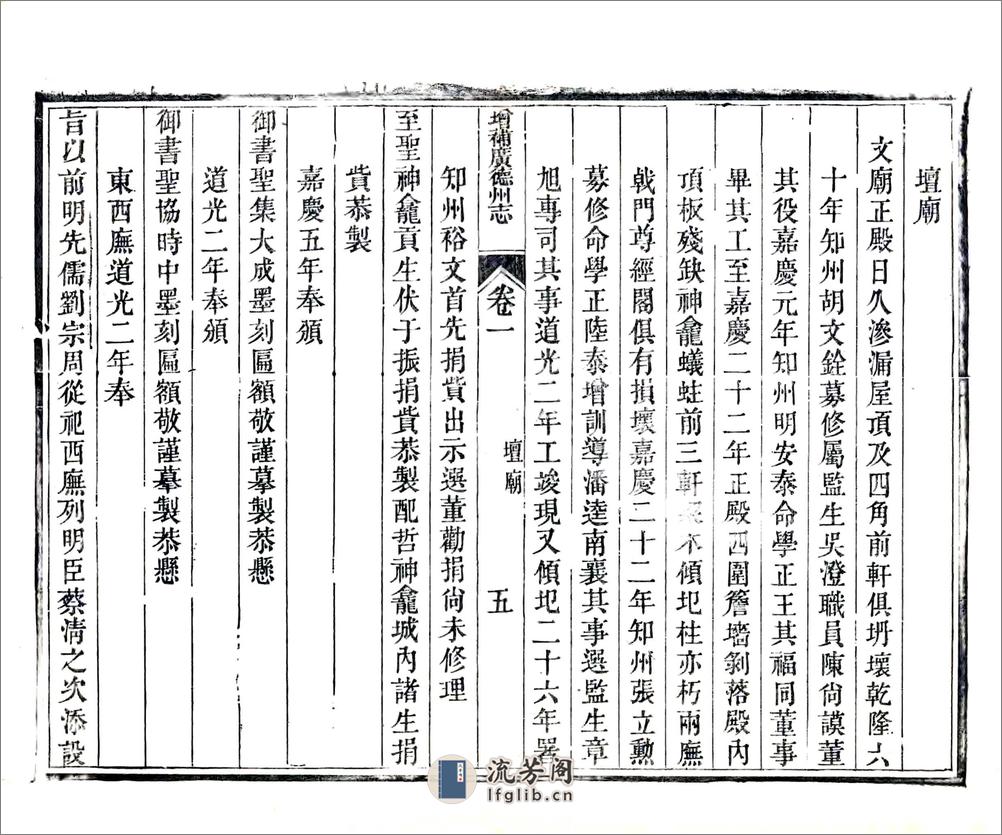 壇廟
文廟正殿日久滲漏屋頂及四角前軒俱坍壞乾隆六
十年知州胡文銓募修屬監生吳澄職員陳尚謨董
其役嘉慶元年知州明安泰命學正王其福同董事
畢其工至嘉慶二十二年正殿四圍簷墻剝落殿內
頂板殘缺神龕蟻蛀前三軒木傾圯柱亦朽兩廡
戟門尊經閣俱有損壞嘉慶二十二年知州張立勲
募修命學正陸泰增訓導潘逵南襄其事選監生章
旭專司其事道光二年工竣現又傾圯二十六年署
增補廣德州志
卷一
壇廟
五
知州裕文首先捐貲出示選董勸捐尚未修理
至聖神龕貢生伏于振捐貲恭製配哲神龕城內諸生捐
貲恭製
嘉慶五年奉頒
御書聖集大成墨刻匾額敬謹摹製恭懸
道光二年奉頒
御書聖協時中墨刻匾額敬謹摹製恭懸
東西廡道光二年奉
旨以前明先儒劉宗周從祀西廡列明臣蔡清之次添設
流芳阁
lfglib.cn